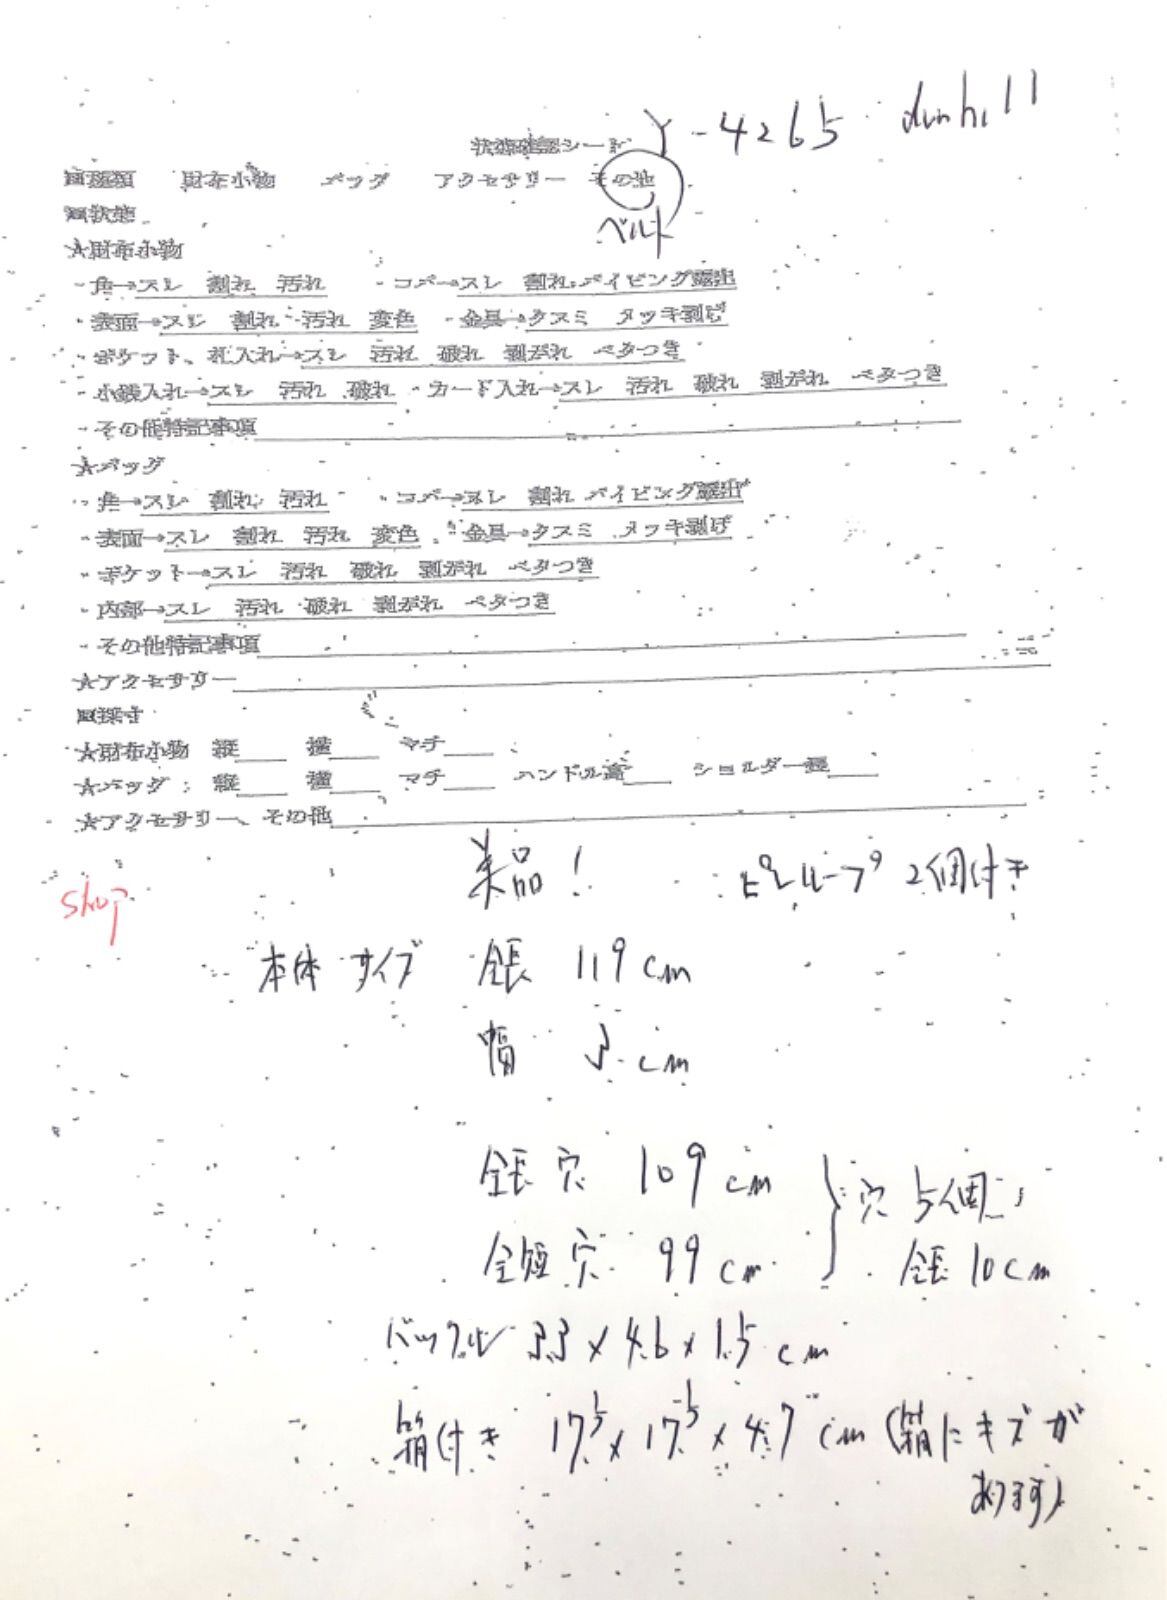 Y-4265 dunhill
状態確認シート
■種類 財布小物 バッグ アクセサリー その他
ベルト
■状態
★財布小物
・角→スレ 割れ 汚れ ・コバ→スレ 割れ パイピング露出
・表面→スレ 割れ 汚れ 変色 ・金具→クスミ メッキ剥げ
・ポケット、札入れ→スレ 汚れ 破れ 剥がれ ベタつき
・小銭入れ→スレ 汚れ 破れ ・カード入れ→スレ 汚れ 破れ 剥がれ ベタつき
・その他特記事項
★バッグ
・角→スレ 割れ 汚れ ・コバ→スレ 割れ パイピング露出
・表面→スレ 割れ 汚れ 変色 ・金具→クスミ メッキ剥げ
・ポケット→スレ 汚れ 破れ 剥がれ ベタつき
・内部→スレ 汚れ 破れ 剥がれ ベタつき
・その他特記事項
★アクセサリー
■採寸
★財布小物 縦 横 マチ
★バッグ: 縦 横 マチ ハンドル高 ショルダー長
★アクセサリー、その他
美品! ピンループ 2個付き
shop
本体 サイズ 全長 119cm
幅 3cm
全長穴 109cm
全短穴 99cm
穴 5個
全長 10cm
バックル 3.3×4.6×1.5cm
箱付き 17.5×17.5×4.7cm (箱にキズが
あります)